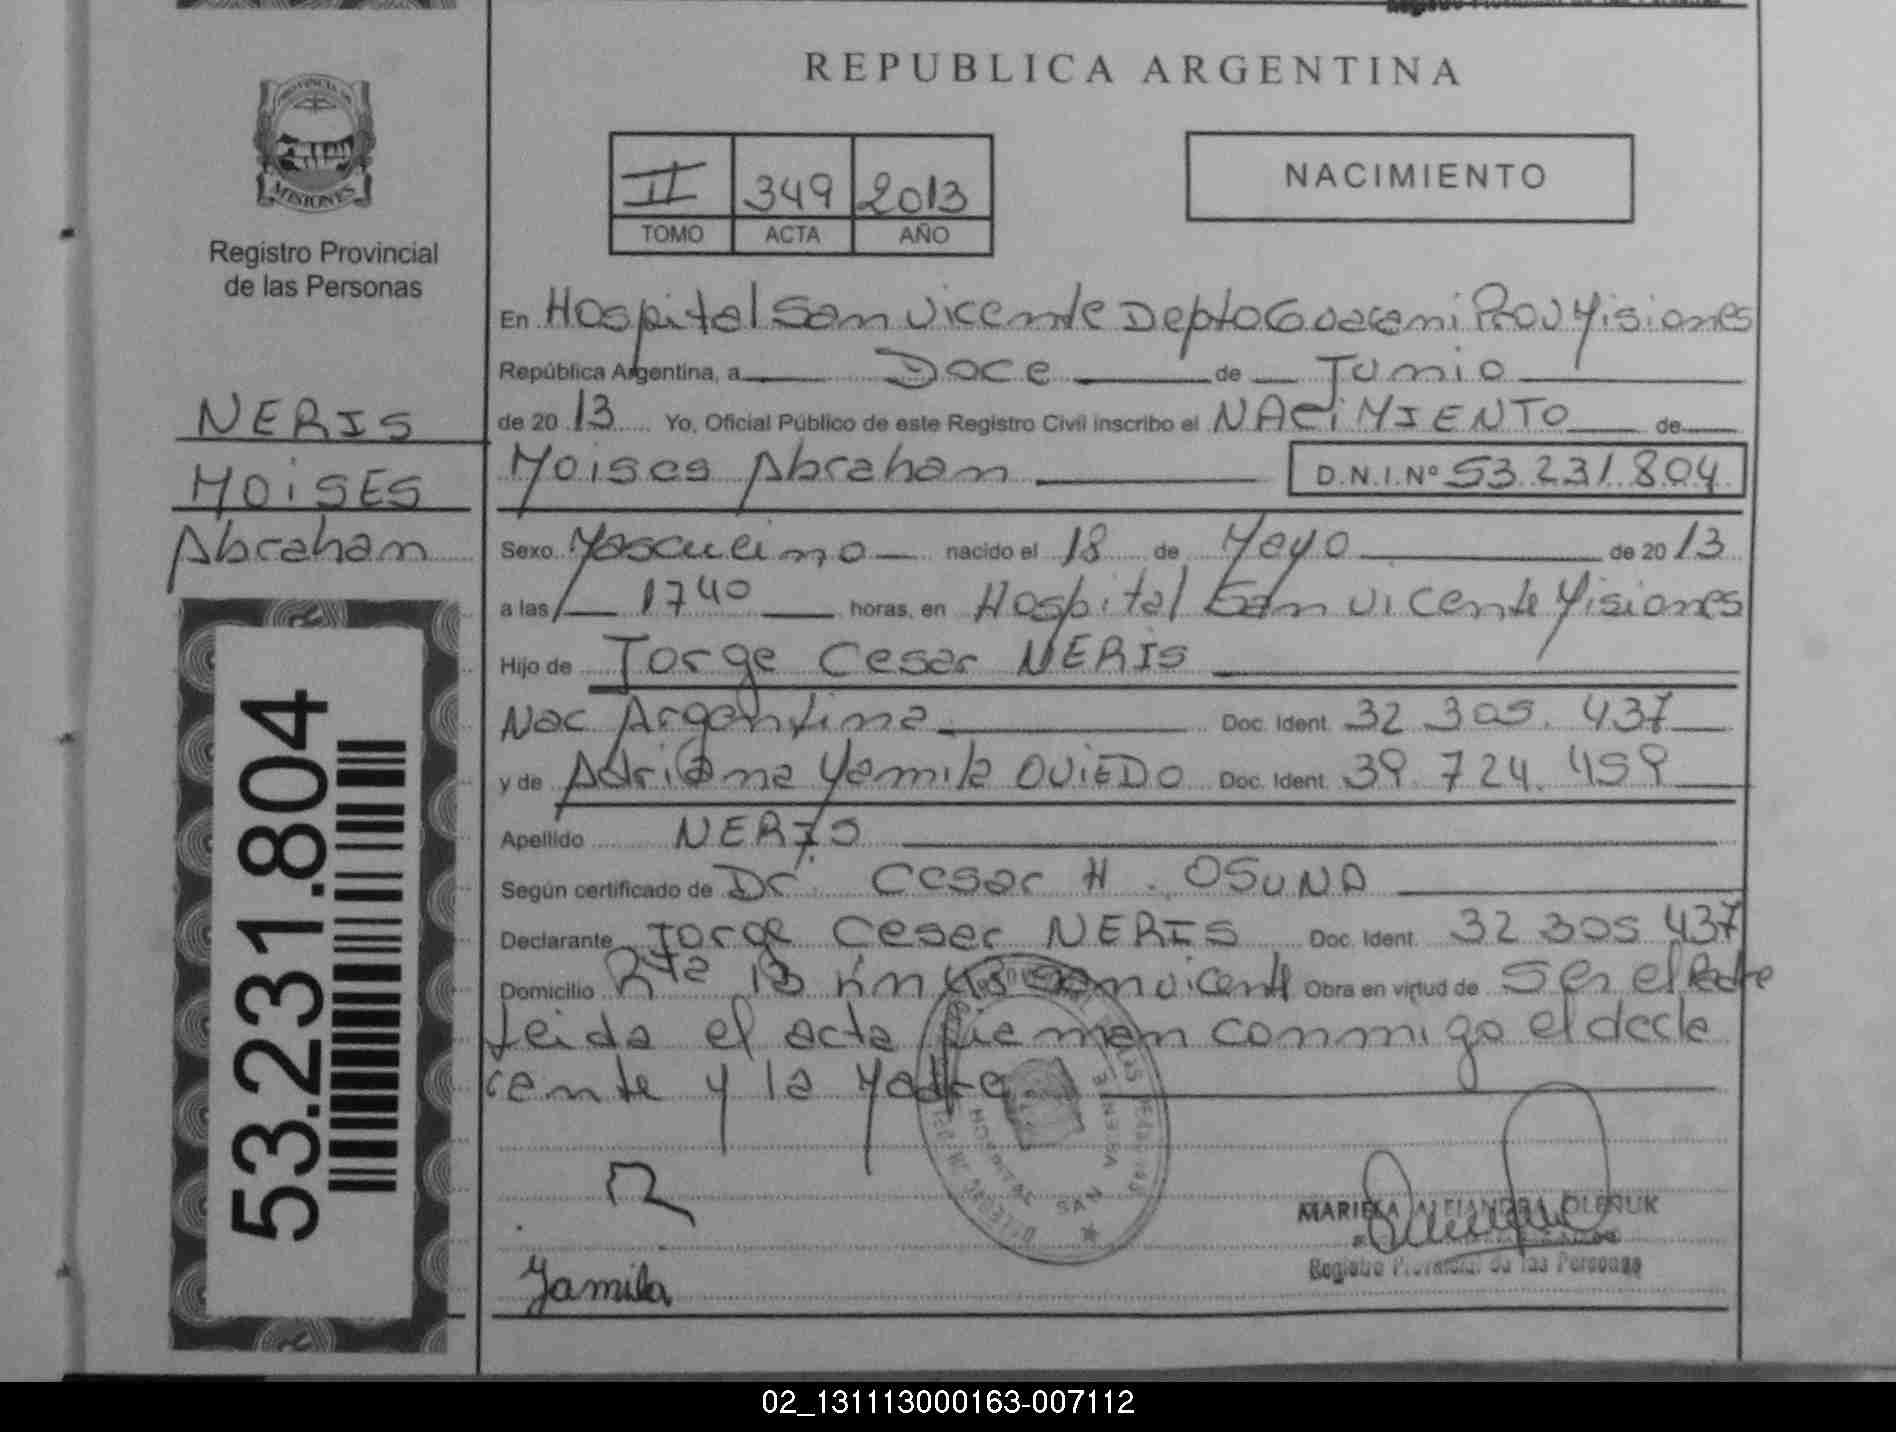 REPUBLICA ARGENTINA
MISIONES
Registro Provincial
de las Personas
II 349 2013
TOMO ACTA AÑO
NACIMIENTO
NERIS
MOISES
Abraham
53.231.804
En Hospital San Vicente Depto Guarani Prov Misiones
República Argentina, a Doce de Junio
de 20 13 Yo, Oficial Público de este Registro Civil inscribo el NACIMIENTO de
Moises Abraham D.N.I.Nº 53.231.804
Sexo Masculino nacido el 18 de Mayo de 20 13
a las 1740 horas, en Hospital San Vicente Misiones
Hijo de Jorge Cesar NERIS
Nac Argentina Doc. Ident. 32 305. 437
y de Adriana Yamila OVIEDO Doc. Ident. 39.724.459
Apellido NERIS
Según certificado de Dr. Cesar H. OSUNA
Declarante Jorge Cesar NERIS Doc. Ident. 32 305 437
Domicilio Rta 13 km San Vicente Obra en virtud de Ser el Padre
Leida el acta firman conmigo el decla
rante y la Madre
MARIELA ALEJANDRA OLENUK
Registro Provincial de las Personas
Yamila
02_131113000163-007112